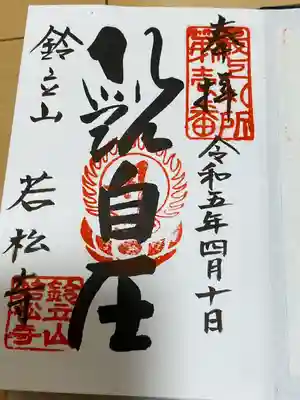 奉拝
令和五年四月十日
観自在
鈴立山
若松寺
鈴立山
若松寺